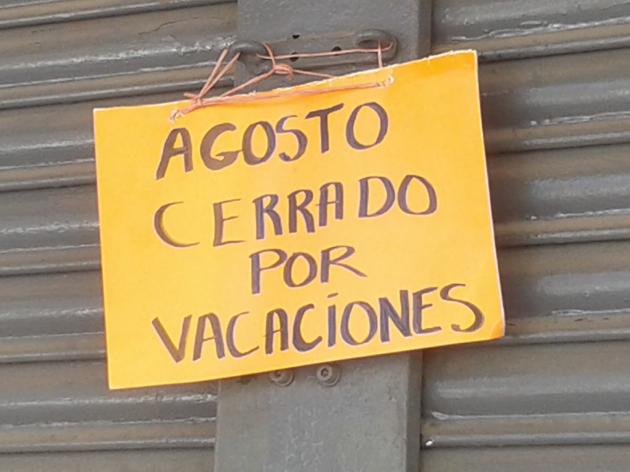 AGOSTO
CERRADO
POR
VACACIONES